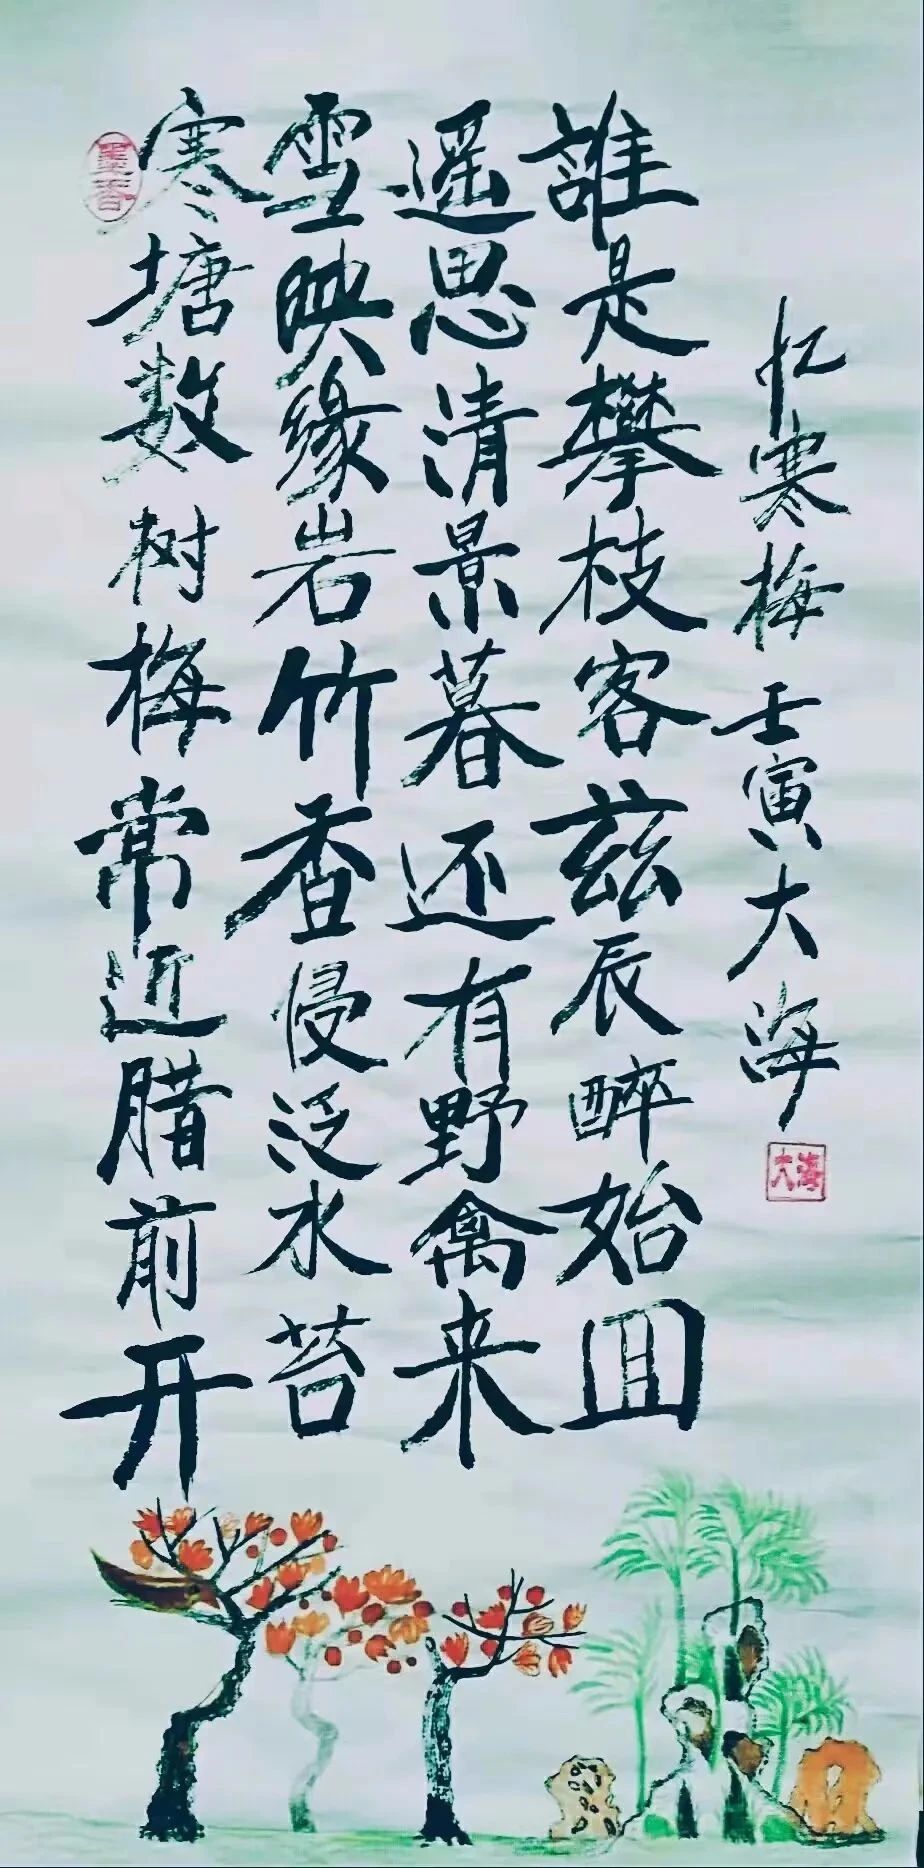 墨香
寒塘数树梅常近腊前开
雪映缘岩竹香侵泛水苔
遥思清景暮还有野禽来
誰是攀枝客兹辰醉始囬
忆寒梅 壬寅大海
大海